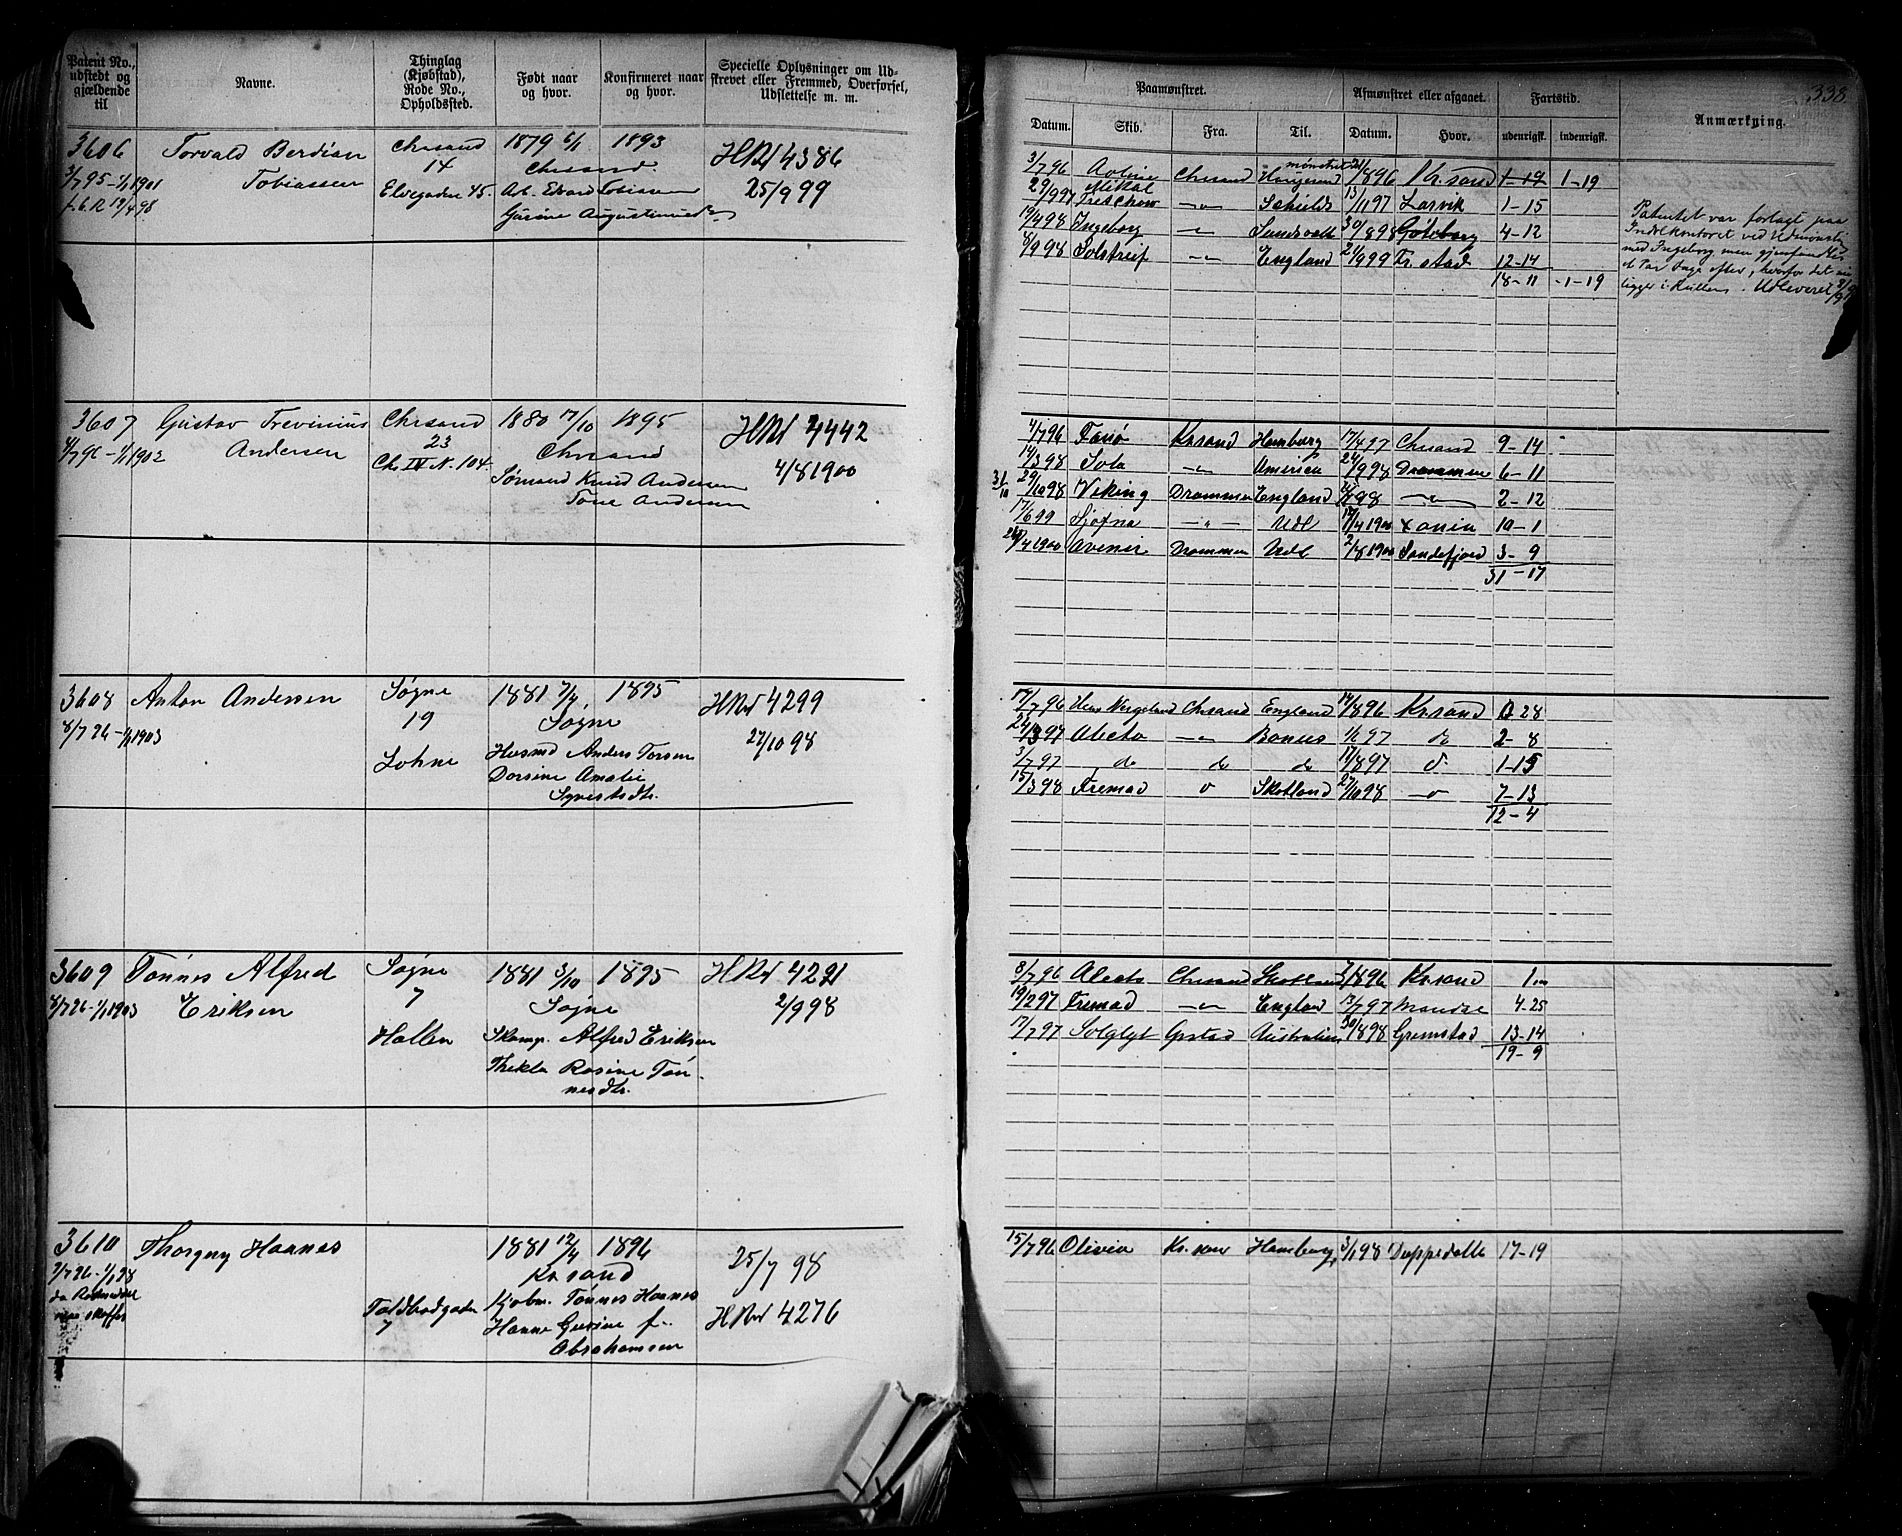 338.
Patent No., udstedt og gjældende til
Navne.
Thinglag (Kjøbstad), Rode No., Opholdssted.
Født naar og hvor.
Konfirmeret naar og hvor.
Specielle Oplysninger om Udskrevet eller Fremmed, Overførsel, Udslettelse m. m.
Paamønstret.
Afmønstret eller afgaaet.
Fartstid.
Anmærkning.
Datum. Skib. Fra. Til. Datum. Hvor. udenrigsk. indenrigsk.
3606 Torvald Berdian Chrsand 1879 6/1 1893 HRul 4386
3/7 95 - 1/1 1901 Tobiassen 14 Chrsand. 25/9 99
12/4 98 Elvegaden 45. Arb. Edvard Tobiassen
Gurine Augustinusd.
3/7 96 Chrsand Haugesund mønstret 21/8 96 Kr.sand 1-19 1-19
29/9 97 Mikal Treschow -"- 13/11 97 Larvik 1-15
19/4 98 Ingeborg -"- Sundsvall 30/8 98 Gøteborg 4-12
8/9 98 Solstreif -"- England 21/9 99 Fr.stad 12-14
18-11 -1-19
Patentet var forlagt paa
Indrkontoret ved Udmønstr.
med Ingeborg, men gjenfandtes
et Par Dage efter, hvorfor det nu
ligger i Rullen. Udleveret
3607 Gustav Trevinius Chrsand 1880 17/10 1895 HRul 4442
4/7 96 - 1/1 1902 Andersen 23 Chrsand 4/8 1900
Ch. IV N. 104. Sømand Knud Andersen
Tone Andersen
4/7 96 Fanø Kr.sand Hamborg 17/4 97 Chrsand 9-14
14/3 98 Sola -"- Amerika 24/9 98 Drammen 6-11
31/10 29/10 98 Viking Drammen England 98 -"- 2-12
17/6 99 Hjofna -"- Udl 17/4 1900 10-1
26/4 1900 Avenir Drammen Udl 2/8 1900 Sandefjord 3-9
31-17
3608 Anton Andersen Søgne 1881 7/4 1895 HRul 4299
8/7 96 - 1/1 1903 19 Søgne 27/10 98
Lohne Husmd Anders Torsen
Dorsine Amalie
Syvertsdtr.
17/7 96 Hen. Wergeland Chrsand England 14/8 96 Kr.sand 0 28
24/3 97 Alecto -"- Bonus 1/6 97 do 2-8
3/7 97 do do do 17/8 97 d. 1-15
15/3 98 Fremad o Skotland 27/10 98 -o 7-13
12-4
3609 Tønnes Alfred Søgne 1881 3/10 1895 HRul 4291
8/7 96 - 1/1 1903 Eriksen 7 Søgne 2/9 98
Hallen Skomp. Alfred Eriksen
Thekla Rosine Tøn-
nesdtr.
8/7 96 Alecto Chrsand Skotland 7/8 96 Kr.sand 1 m
19/2 97 Fremad -"- England 13/7 97 Mandal 4-25
17/7 97 Solglyt Grstad Australien 30/8 98 Grimstad 13-14
19-9
3610 Thorguy Haanes 1881 12/4 1896 25/7 98
7/7 96 - 1/1 98 Kr.sand
Toldbodgaden Kjøbm. Tønnes Haanes
7 Hanne Gurine f. HRul 4276
Abrahamsen
15/7 96 Olivia Kr.san Hamborg 3/1 98 Deppedalle 17-19